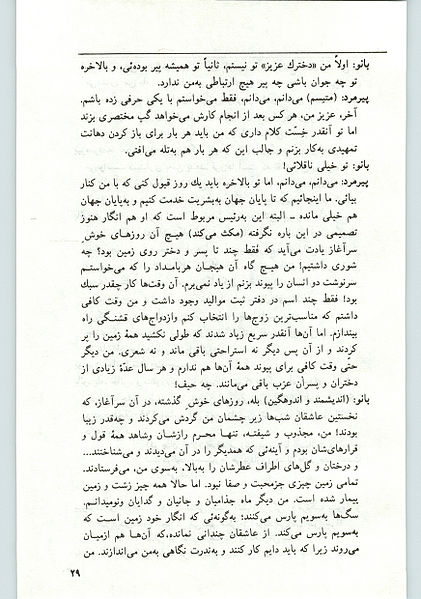 بانو: اولاً من «دخترك عزیز» تو نیستم، ثانیاً تو همیشه پیر بوده‌ئی، و بالاخره
تو چه جوان باشی چه پیر هیچ ارتباطی به‌من ندارد.
پیرمرد: (متبسم) می‌دانم، می‌دانم، فقط می‌خواستم با یکی حرفی زده باشم.
آخر، عزیز من، هر کس بعد از انجام کارش می‌خواهد گپ مختصری بزند
اما تو آنقدر خِسّت کلام داری که من باید هر بار برای باز کردن دهانت
تمهیدی به‌کار بزنم و جالب این که هر بار هم به‌تله می‌افتی.
بانو: تو خیلی ناقلائی!
پیرمرد: می‌دانم، می‌دانم، اما تو بالاخره باید یك روز قبول کنی که با من کنار
بیائی. ما اینجائیم که تا پایان جهان به‌بشریت خدمت کنیم و به‌پایان جهان
هم خیلی مانده – البته این به‌رئیس مربوط است که او هم انگار هنوز
تصمیمی در این باره نگرفته (مکث می‌کند) هیچ آن روزهای خوش
سرآغاز یادت می‌آید که فقط چند تا پسر و دختر روی زمین بود؟ چه
شوری داشتیم! من هیچ گاه آن هیجان هربامداد را که می‌خواستم
سرنوشت دو انسان را پیوند بزنم از یاد نمی‌برم. آن وقت‌ها کار چقدر سبك
بود! فقط چند اسم در دفتر ثبت موالید وجود داشت و من وقت کافی
داشتم که مناسب‌ترین زوج‌ها را انتخاب کنم وازدواج‌های قشنگی راه
بیندازم. اما آن‌ها آنقدر سریع زیاد شدند که طولی نکشید همهٔ زمین را پر
کردند و از آن پس دیگر نه استراحتی باقی ماند و نه شعری. من دیگر
حتی وقت کافی برای پیوند همهٔ آن‌ها هم ندارم و هر سال عدّهٔ زیادی از
دختران و پسران عزب باقی می‌مانند. چه حیف!
بانو: (اندیشمند و اندوهگین) بله، روزهای خوش گذشته، در آن سرآغاز، که
نخستین عاشقان شب‌ها زیر چشمان من گردش می‌کردند و چه‌قدر زیبا
بودند! من، مجذوب و شیفته، تنها محرم رازشان وشاهد همهٔ قول و
قرارهای‌شان بودم و آینه‌ئی که همدیگر را در آن می‌دیدند و می‌شناختند...
و درختان و گل‌های اطراف عطرشان را به‌بالا، به‌سوی من، می‌فرستادند.
تمامی زمین چیزی جزمحبت و صفا نبود. اما حالا همه چیز زشت و زمین
بیمار شده است. من دیگر ماه جذامیان و جانیان و گدایان ونومیدانم.
سگ‌ها به‌سویم پارس می‌کنند؛ به‌گونه‌ئی که انگار خود زمین است که
به‌سویم پارس می‌کند. از عاشقان چندانی نمانده،که آن‌ها هم ازمیان
می‌روند زیرا که باید دایم کار کنند و به‌ندرت نگاهی به‌من می‌اندازند. من
۲۹